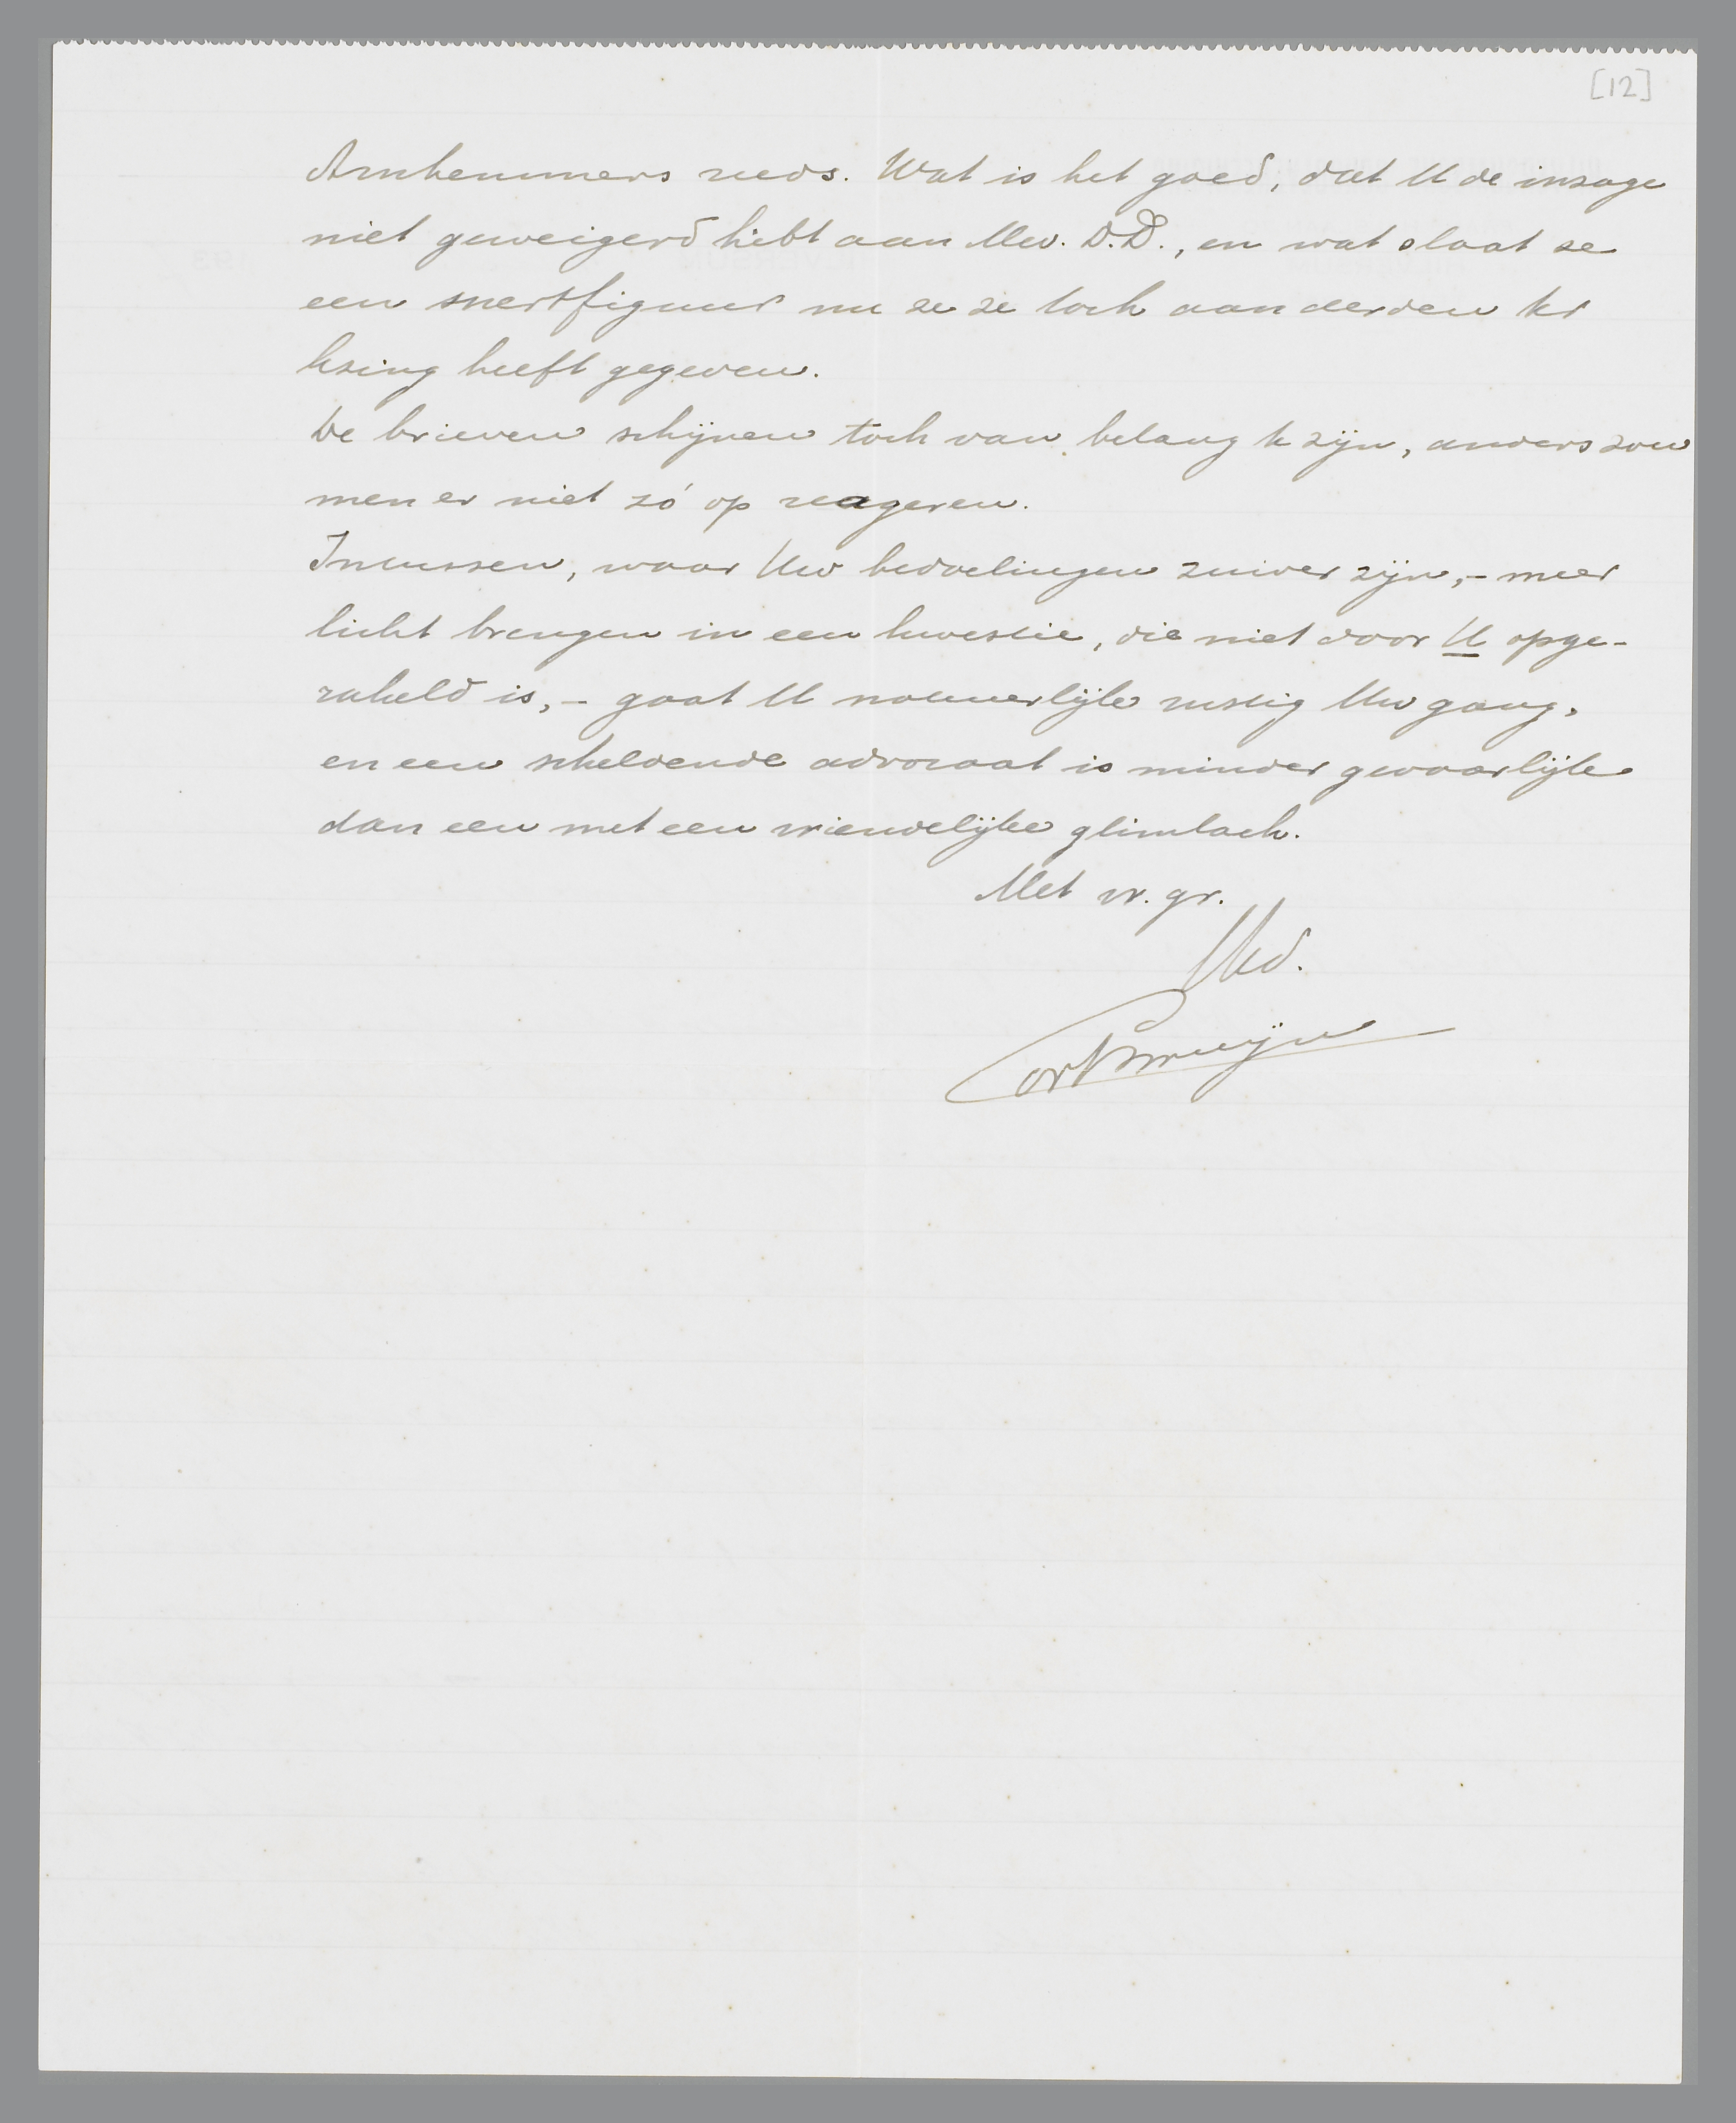 [12]
Arnhemmers reeds. Wat is het goed, dat U de inzage
niet geweigerd hebt aan Mw. D.D., en wat slaat ze
een snertfiguur nu ze ze toch aan derden ter
lezing heeft gegeven.
De brieven schijnen toch van belang te zijn, anders zou
men er niet zó op reageren.
Intussen, waar Uw bedoelingen zuiver zijn,- meer
licht brengen in een kwestie, die niet door U opge-
rakeld is,- gaat U natuurlijk rustig Uw gang,
en een scheldende advocaat is minder gevaarlijk
dan een met een vriendelijke glimlach.
Met vr. gr.
Uwd.
Cort Bruijn